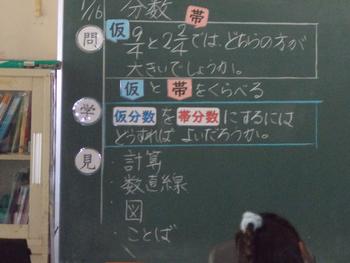 1/16 分数
帯
仮
問 9/4と2 2/4では、どちらの方が
大きいでしょうか。
仮と帯をくらべる
学 仮分数を帯分数にするには
どうすればよいだろうか。
見 ・計算
・数直線
・図
・ことば